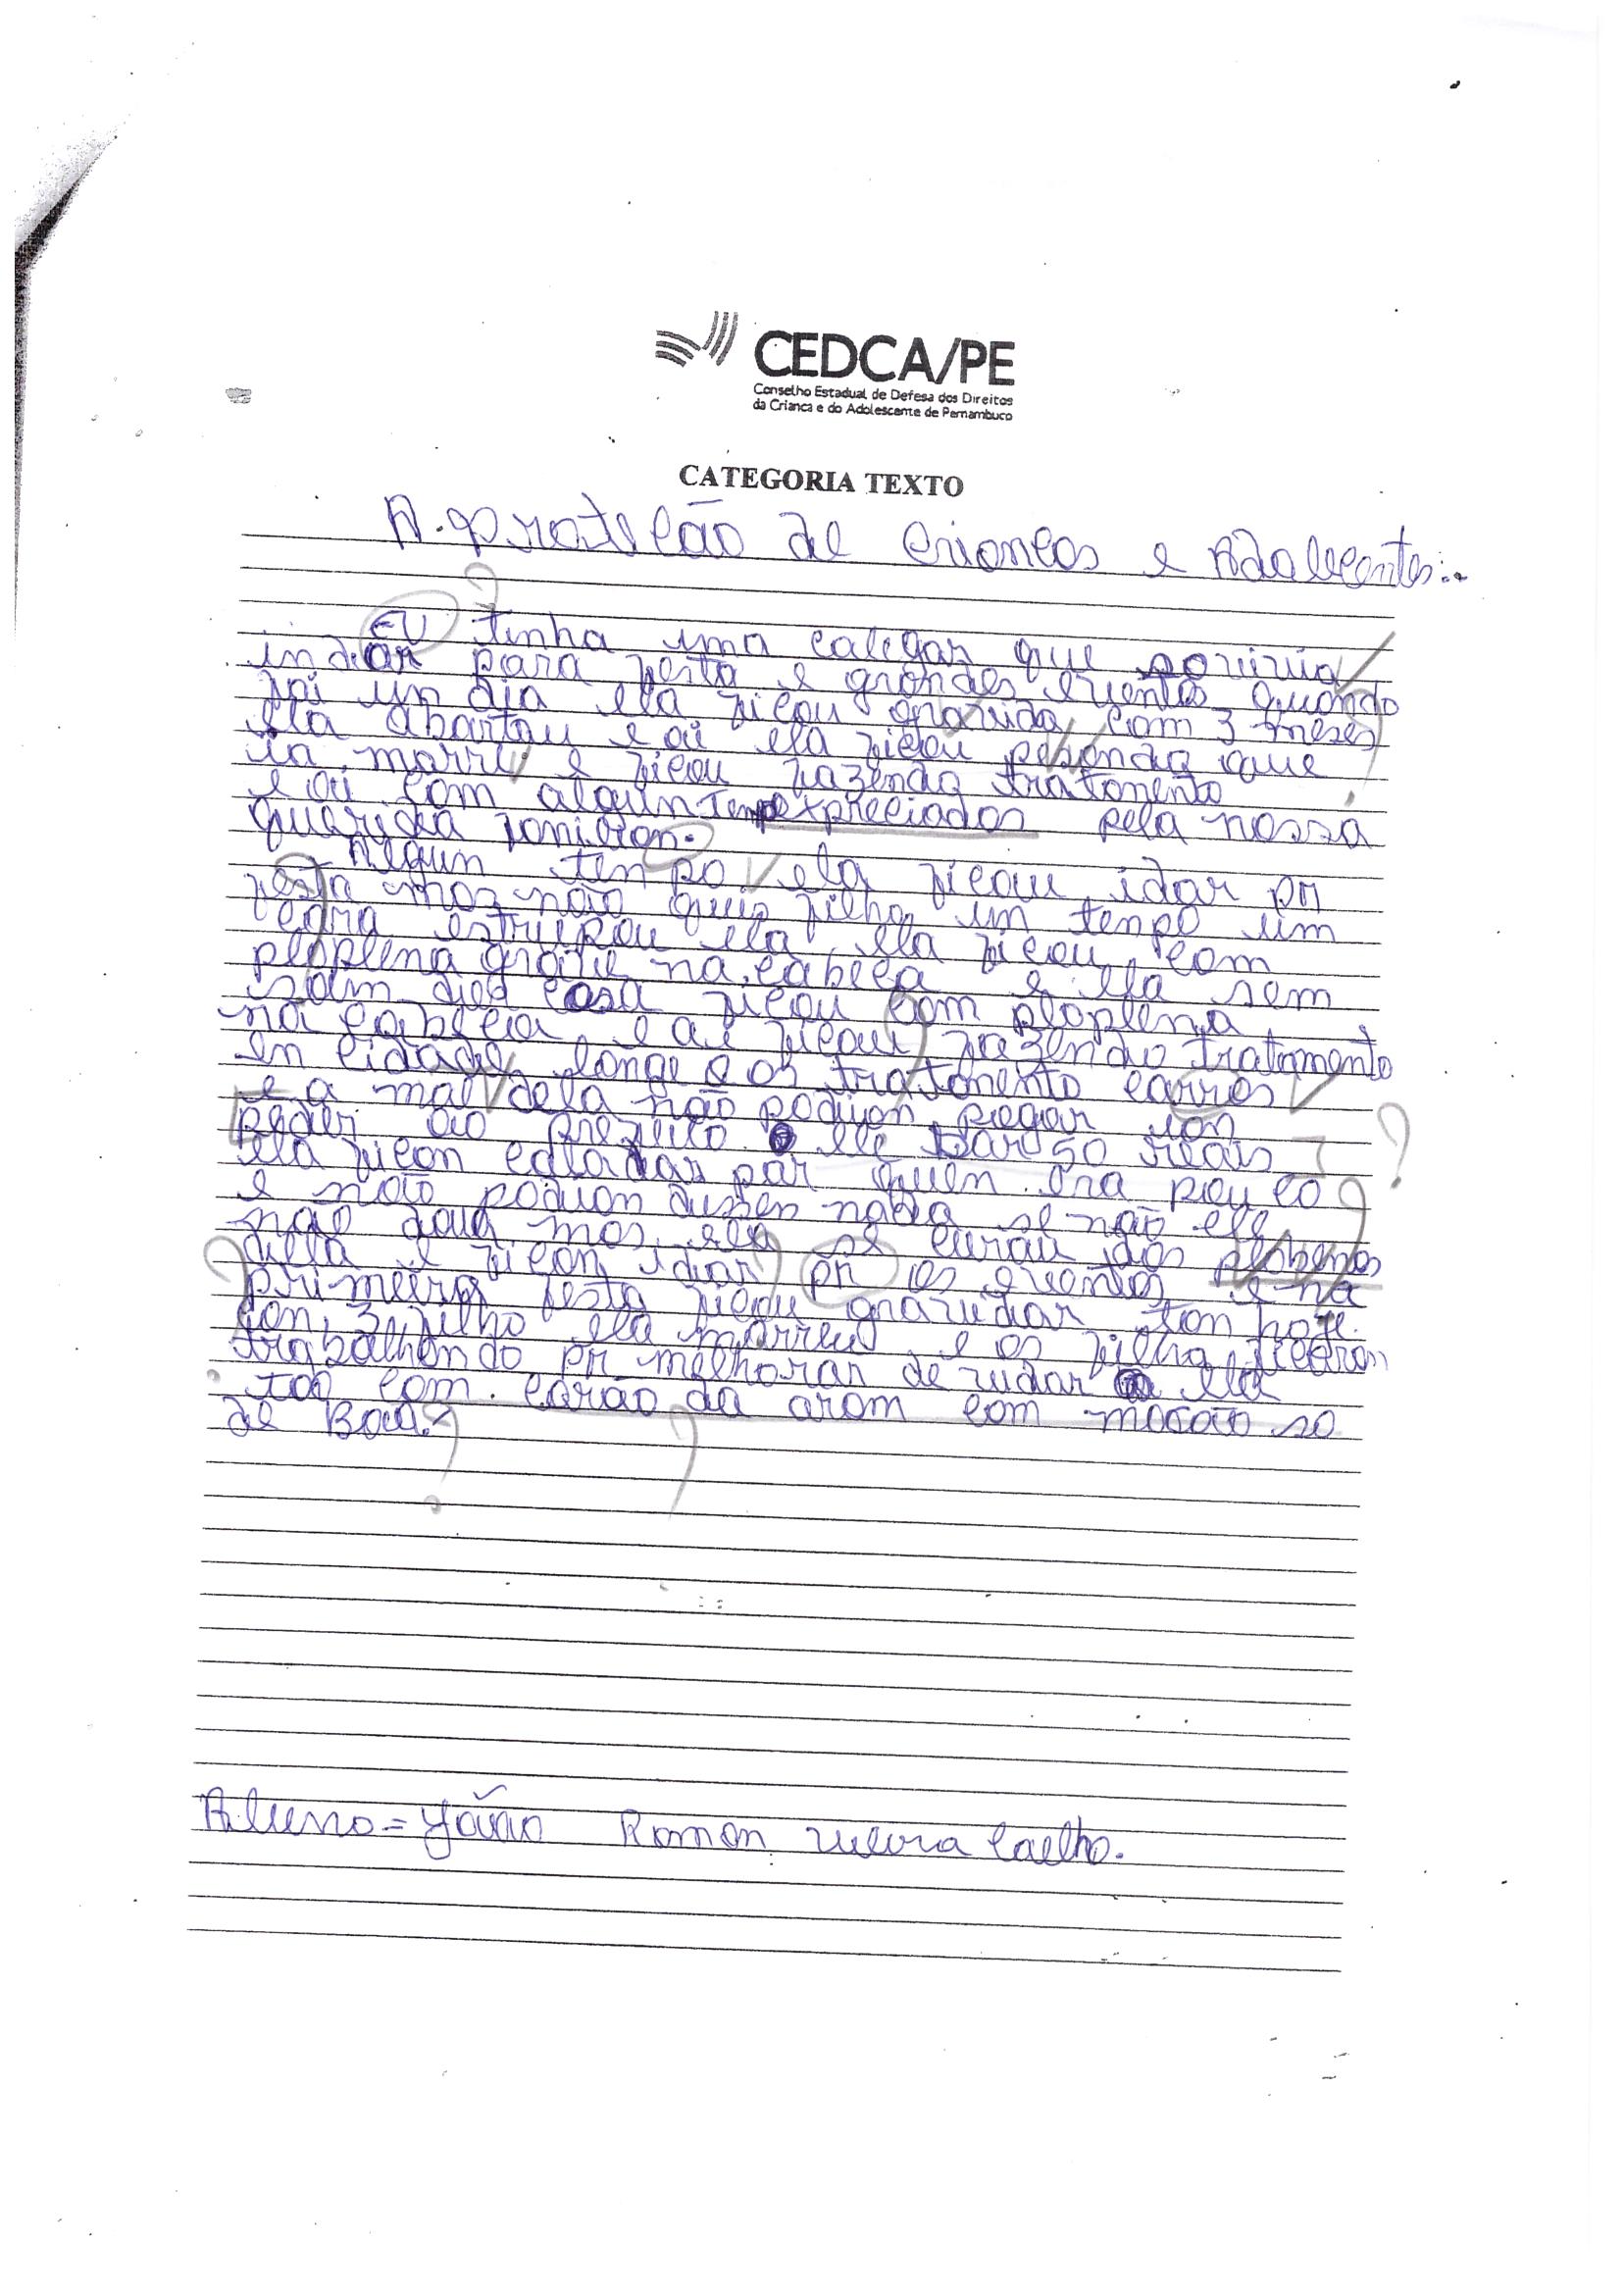 CEDCA/PE
Conselho Estadual de Defesa dos Direitos
da Criança e do Adolescente de Pernambuco
CATEGORIA TEXTO
A. proteção de crioncos e Adolecentes:..
EU tinha uma calegar que
para festa e grondes eventos quando
foi um dia ela ficou gravida com 3 meses
ela abortou e ai ela ficou pesondo que
ia morre e ficou fazendo tratomento
e ai com algun tempo xpreciados pela nossa
Algun tempo ela ficou idar pr
festa mas não quis filho um tempo um
cara estrupou ela, ela ficou com
ploplema grave na cabeça e ela sem
casa ficou com ploplema
na cabeça e ai ficou fazendo tratamento
en cidade longe e os tratomento carros
e a mãe dela não podion pegar
Peder ao prefeito e ele dar 50 reais
ela ficon caladar por quen era pouco
e não podion dissen nada se não ele
não dava mos ela se curau dos
della e ficon idiar pr os eventos e na
primeira festa ficou gravidiar ton hoje
con 3 filho ela morreu e os filho ficaron
trabalhondo pr melhorar de vidar ela
com
de Boa.
Aluno = Romon vieira Coelho.